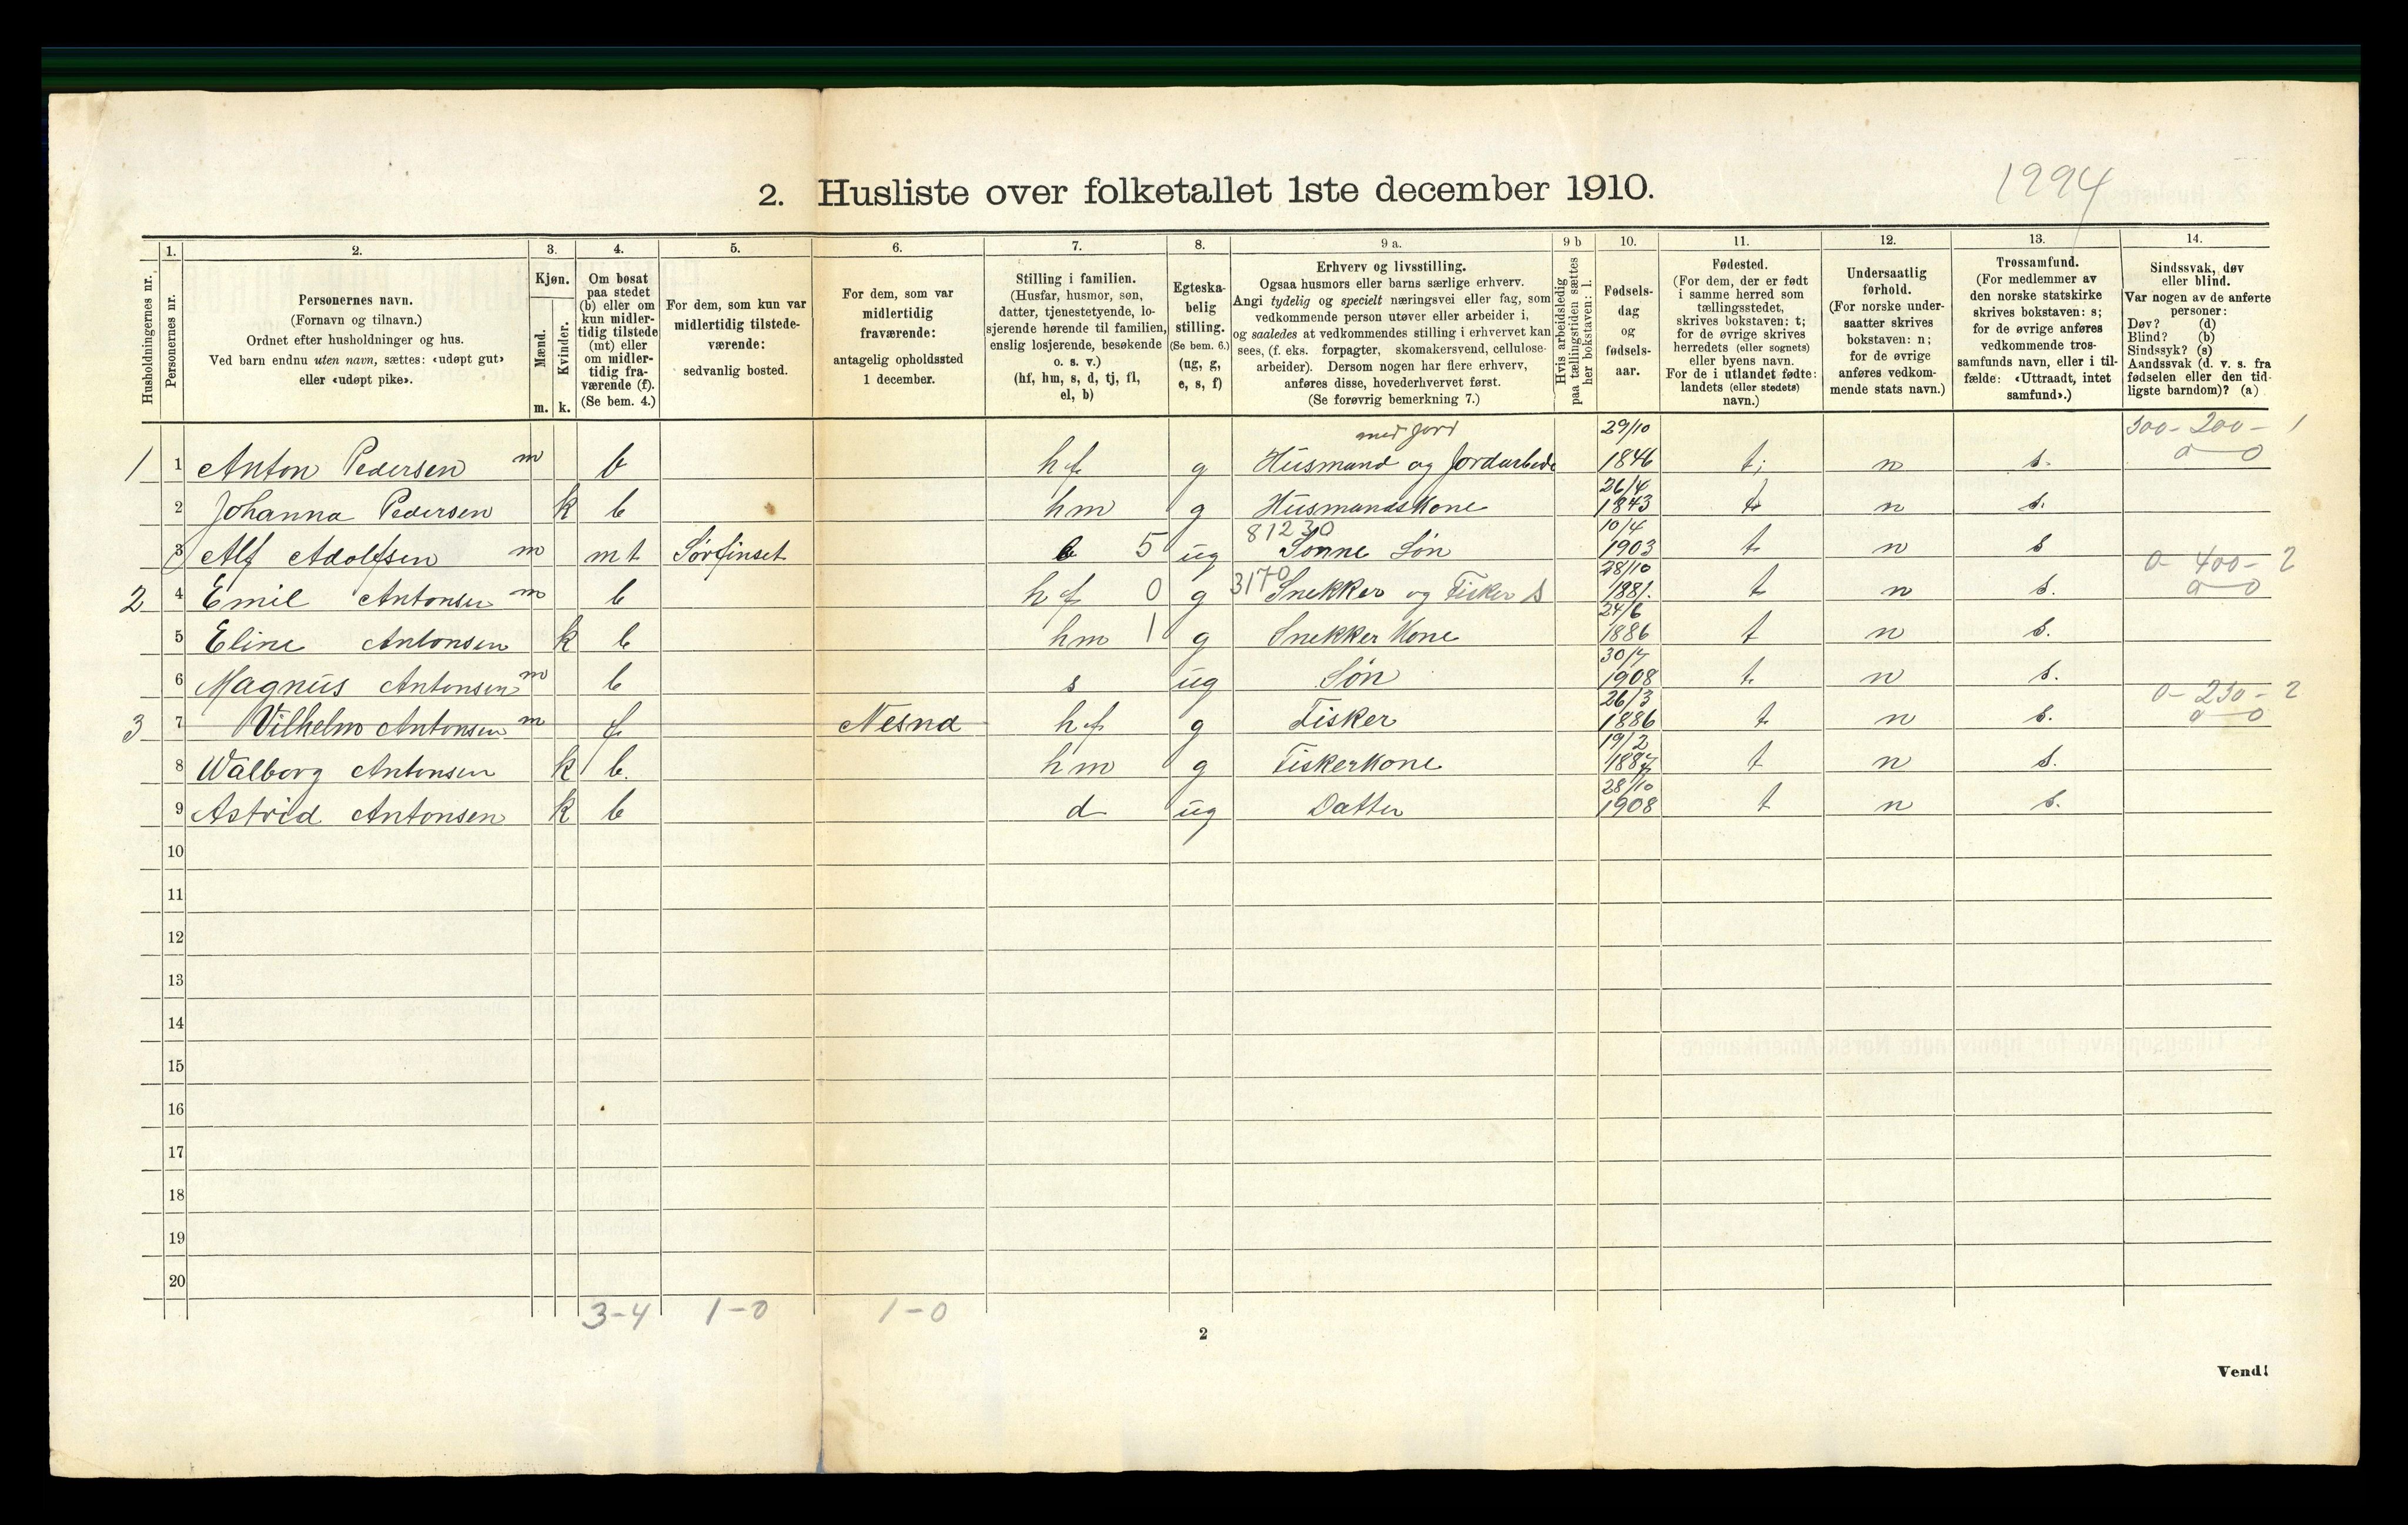 1994
2. Husliste over folketallet 1ste december 1910.
1. 2. 3. 4. 5. 6. 7. 8. 9 a. 9 b 10. 11. 12. 13. 14.
Husholdningernes nr.
Personernes nr.
Personernes navn.
(Fornavn og tilnavn.)
Ordnet efter husholdninger og hus.
Ved barn endnu uten navn, sættes: «udøpt gut»
eller «udøpt pike».
Kjøn.
Mænd.
Kvinder.
m. k.
Om bosat
paa stedet
(b) eller om
kun midler-
tidig tilstede
(mt) eller
om midler-
tidig fra-
værende (f).
(Se bem. 4.)
For dem, som kun var
midlertidig tilstede-
værende:
sedvanlig bosted.
For dem, som var
midlertidig
fraværende:
antagelig opholdssted
1 december.
Stilling i familien.
(Husfar, husmor, søn,
datter, tjenestetyende, lo-
sjerende hørende til familien,
enslig losjerende, besøkende
o. s. v.)
(hf, hm, s, d, tj, fl,
el, b)
Egteska-
belig
stilling.
(Se bem. 6.)
(ug, g,
e, s, f)
Erhverv og livsstilling.
Ogsaa husmors eller barns særlige erhverv.
Angi tydelig og specielt næringsvei eller fag, som
vedkommende person utøver eller arbeider i,
og saaledes at vedkommendes stilling i erhvervet kan
sees, (f. eks. forpagter, skomakersvend, cellulose-
arbeider). Dersom nogen har flere erhverv,
anføres disse, hovederhvervet først.
(Se forøvrig bemerkning 7.)
Hvis arbeidsledig
paa tællingstiden sættes
her bokstaven: l.
Fødsels-
dag
og
fødsels-
aar.
Fødested.
(For dem, der er født
i samme herred som
tællingsstedet,
skrives bokstaven: t;
for de øvrige skrives
herredets (eller sognets)
eller byens navn.
For de i utlandet fødte:
landets (eller stedets)
navn.)
Undersaatlig
forhold.
(For norske under-
saatter skrives
bokstaven: n;
for de øvrige
anføres vedkom-
mende stats navn.)
Trossamfund.
(For medlemmer av
den norske statskirke
skrives bokstaven: s;
for de øvrige anføres
vedkommende tros-
samfunds navn, eller i til-
fælde: «Uttraadt, intet
samfund».)
Sindssvak, døv
eller blind.
Var nogen av de anførte
personer:
Døv? (d)
Blind? (b)
Sindssyk? (s)
Aandssvak (d. v. s. fra
fødselen eller den tid-
ligste barndom)? (a)
med jord 29/10 300- 200- 1
1 1 Anton Pedersen m b hf g Husmand og Jordarbeide 1846 t; n s. a 0
26/4
2 Johanna Pedersen k b hm g HusmandsKone 1843 t n s.
81230 10/4
3 Alf Adolfsen m mt Sørfinset b 5 ug Sønne Søn 1903 t. n s
3170 28/10 0- 400- 2
2 4 Emil Antonsen m b hf 0 g Snekker og Fisker s 1881. t n s. a 0
24/6
5 Eline Antonsen k b hm 1 g Snekker Kone 1886 t n s.
30/7
6 Magnus Antonsen m b s ug Søn 1908 t. n s.
26/3 0- 250- 2
3 7 Vilhelm Antonsen m f Nesna hf g Fisker 1886 t n s. a 0
19/2
8 Walborg Antonsen k b. hm g Fiskerkone 1887 t n s.
28/10
9 Astrid Antonsen k b d ug Datter 1908 t n s.
10
11
12
13
14
15
16
17
18
19
20
3-4 1-0 1-0
2
Vend!